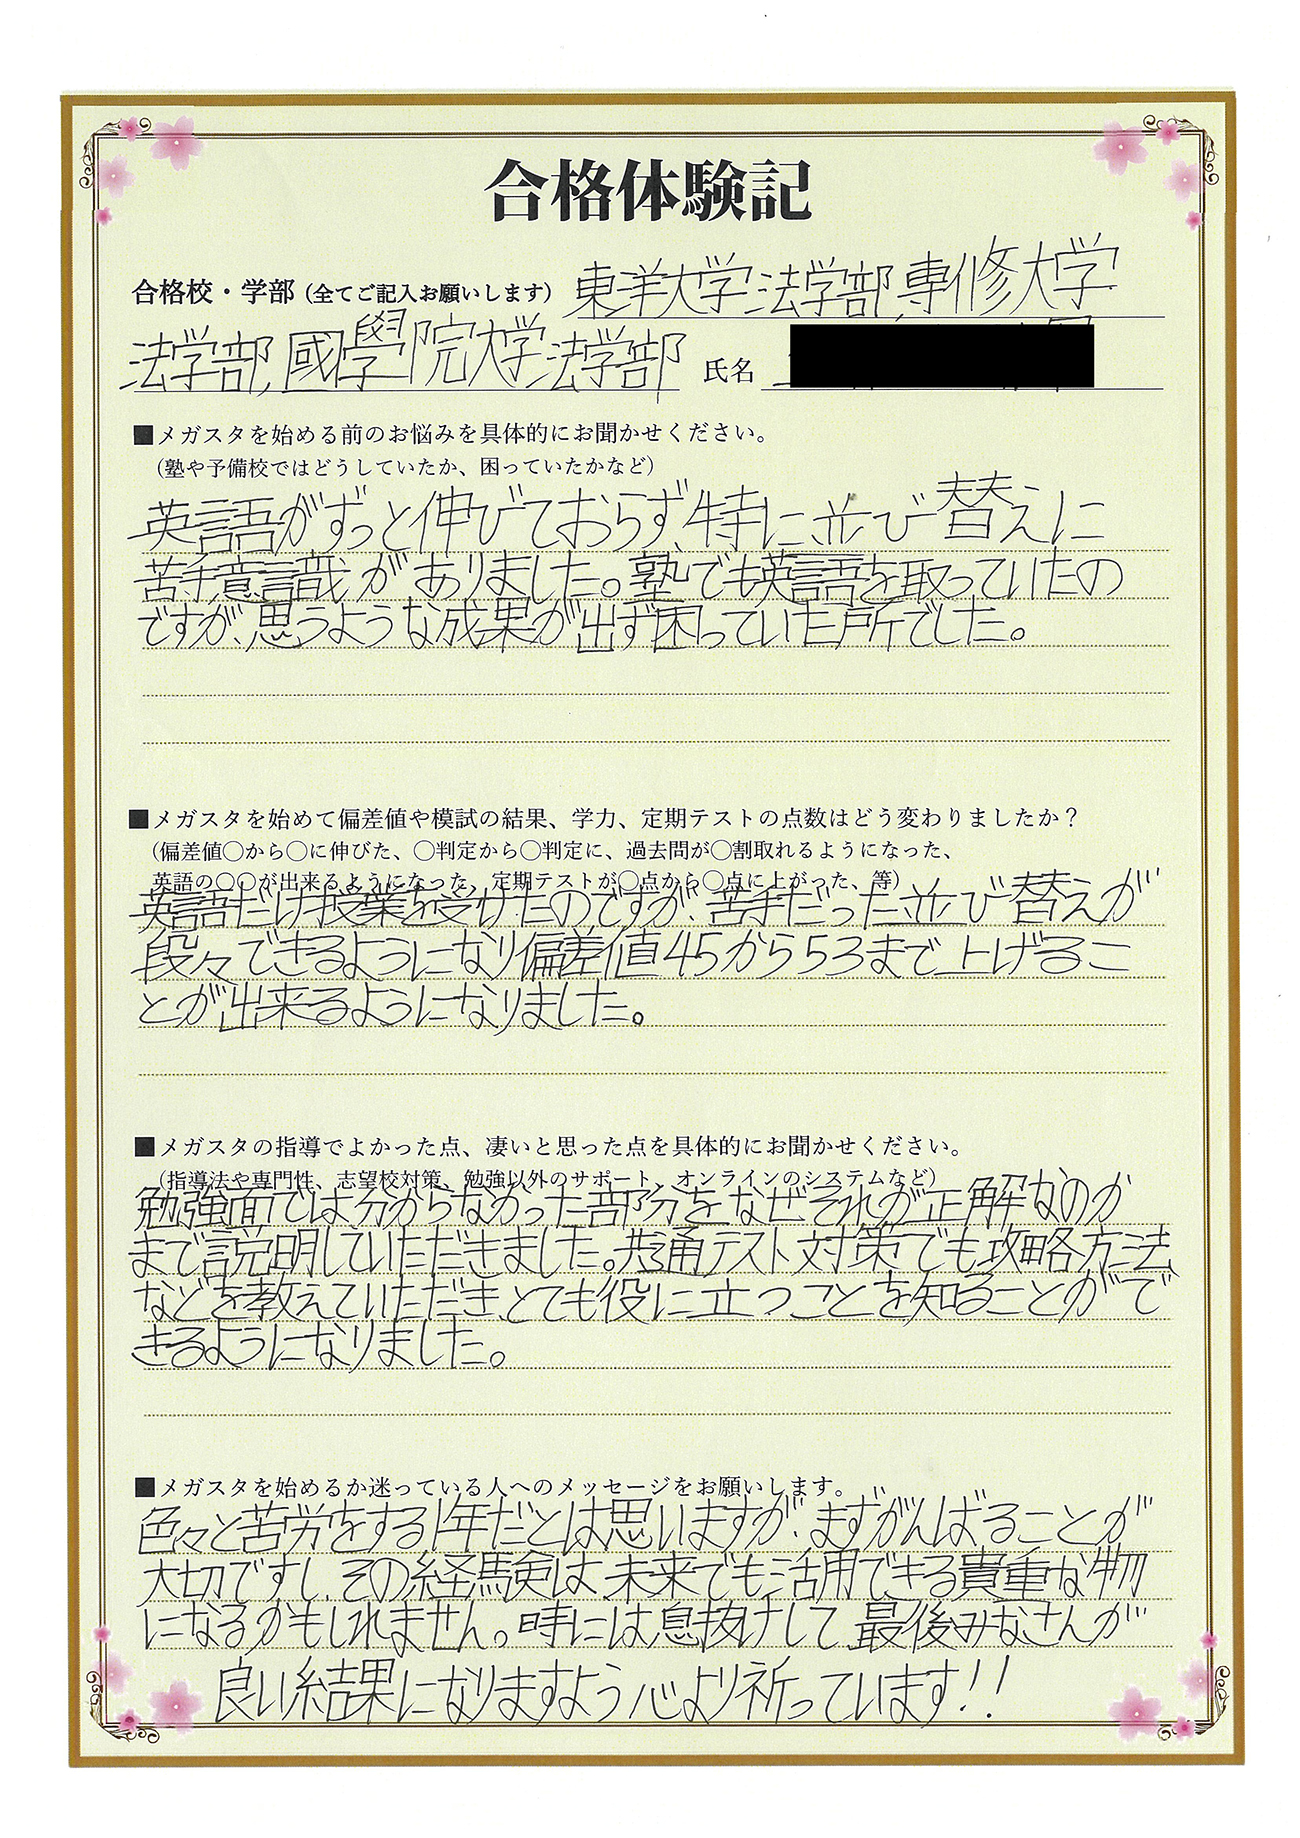 合格体験記
合格校・学部（全てご記入お願いします） 東洋大学法学部,専修大学
法学部,國學院大学法学部 氏名
■メガスタを始める前のお悩みを具体的にお聞かせください。
（塾や予備校ではどうしていたか、困っていたかなど）
英語がずっと伸びておらず、特に並び替えに
苦手意識がありました。塾でも英語を取っていたの
ですが、思うような成果が出ず困っていた所でした。
■メガスタを始めて偏差値や模試の結果、学力、定期テストの点数はどう変わりましたか？
（偏差値〇から〇に伸びた、〇判定から〇判定に、過去問が〇割取れるようになった、
英語の〇〇が出来るようになった、定期テストが〇点から〇点に上がった、等）
英語だけ授業を受けたのですが、苦手だった並び替えが
段々できるようになり偏差値45から53まで上げるこ
とが出来るようになりました。
■メガスタの指導でよかった点、凄いと思った点を具体的にお聞かせください。
（指導法や専門性、志望校対策、勉強以外のサポート、オンラインのシステムなど）
勉強面では分からなかった部分をなぜそれが正解なのか
まで説明していただきました。共通テスト対策でも攻略方法
などを教えていただき、とても役に立つことを知ることがで
きるようになりました。
■メガスタを始めるか迷っている人へのメッセージをお願いします。
色々と苦労をする1年だとは思いますが、まずがんばることが
大切ですし、その経験は未来でも活用できる貴重な物
になるかもしれません。時には息抜けして、最後みなさんが
良い結果になりますよう心より祈っています!!